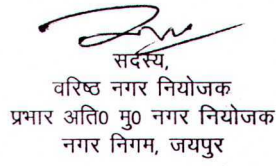 सदस्य,
वरिष्ठ नगर नियोजक
प्रभार अति० मु० नगर नियोजक
नगर निगम, जयपुर